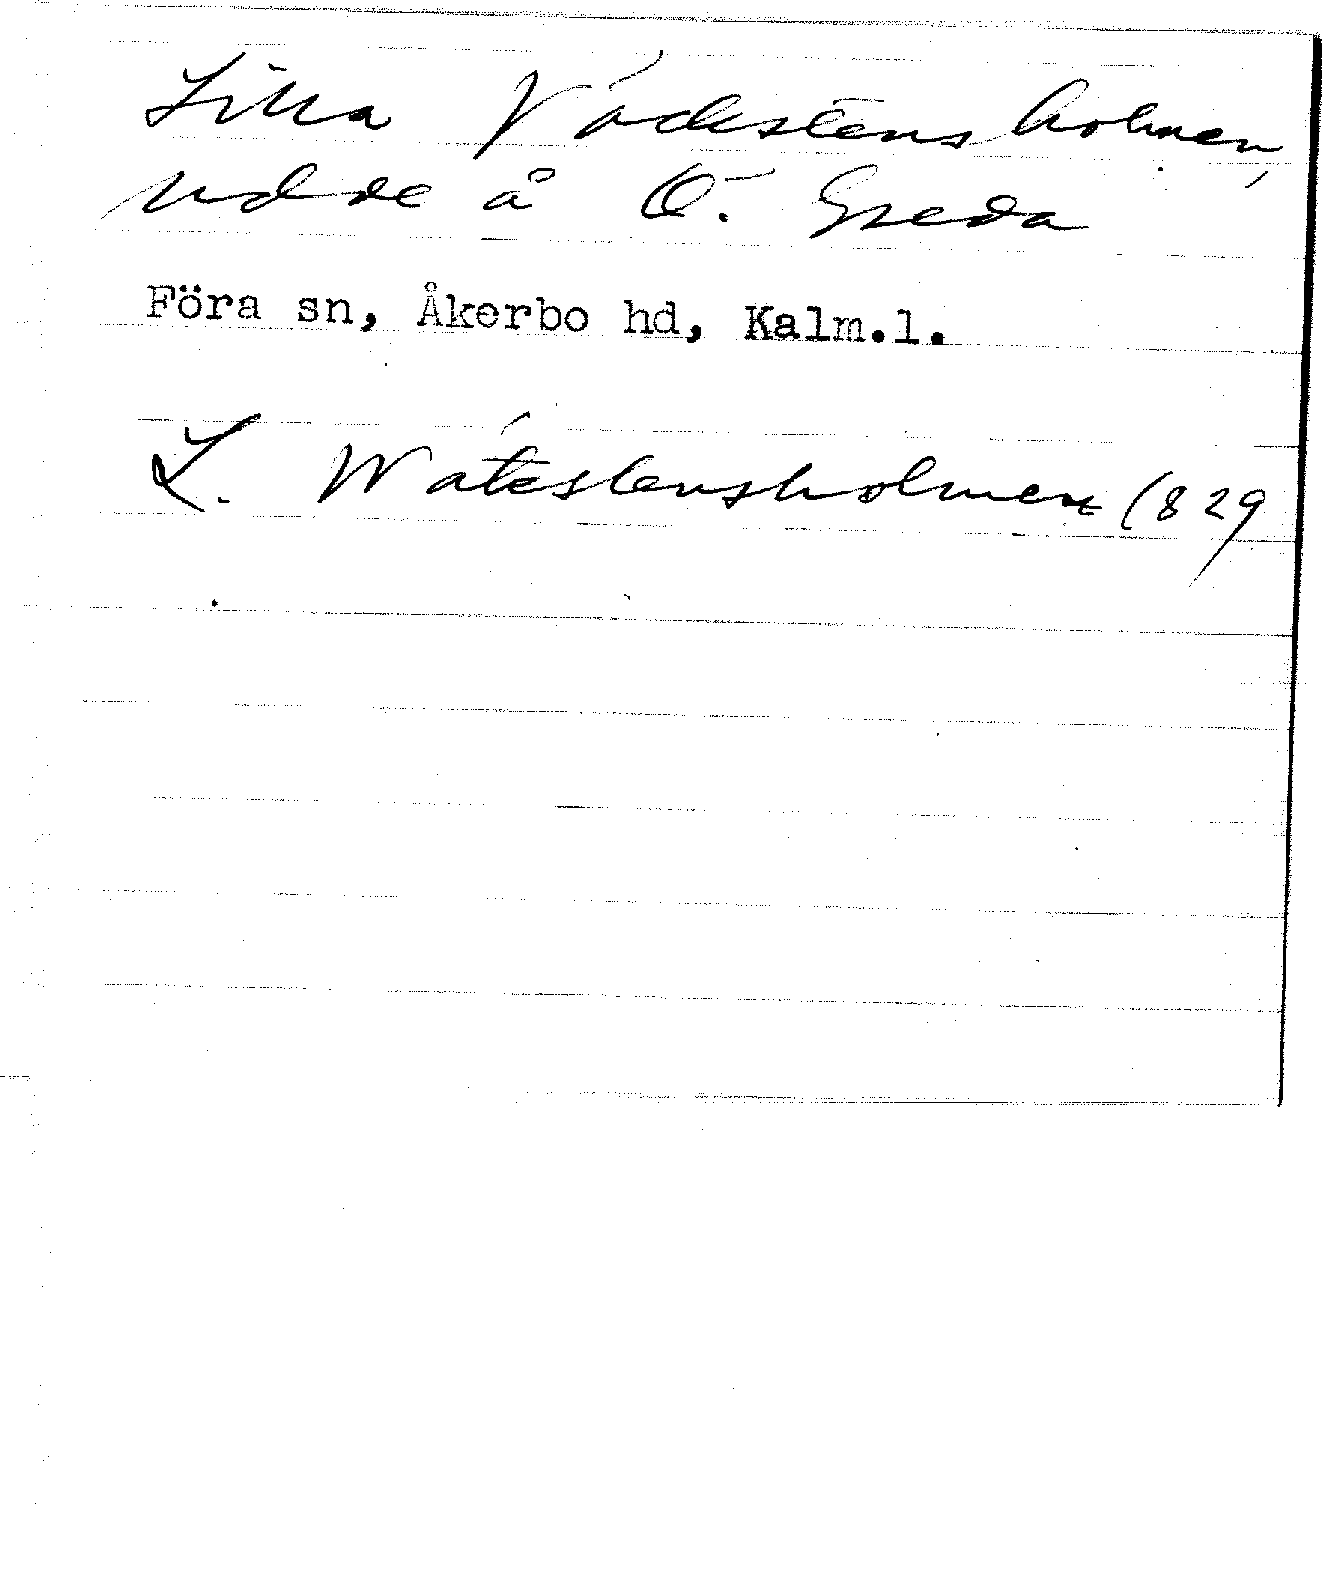 Lilla Vädestensholmen,
udde å Ö. Greda
Föra sn, Åkerbo hd, Kalm.l.
L. Wätestensholmen 1829